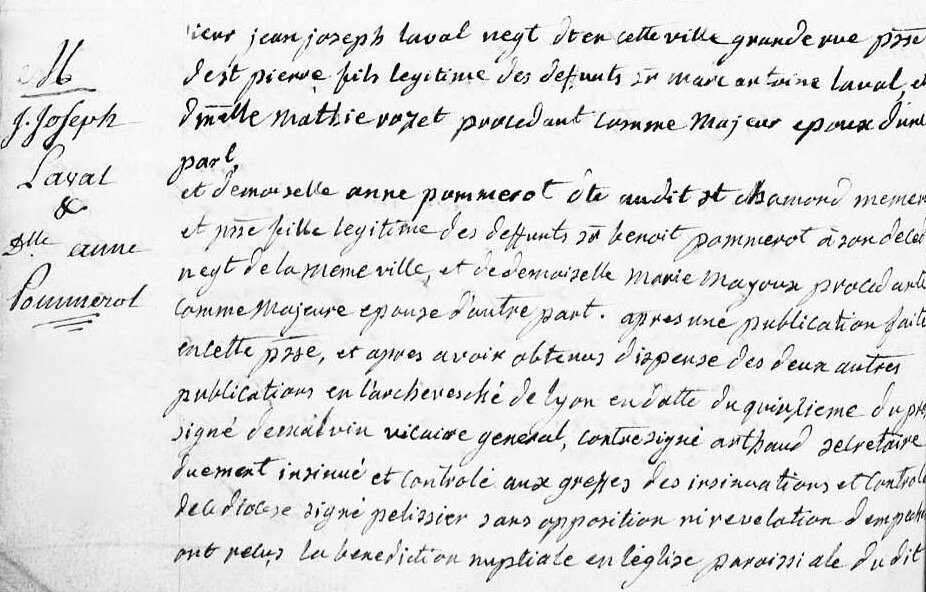 M
J. Joseph
Laval
&
Dlle anne
Pommerol
sieur jean joseph laval negt dt en cette ville grande rue psse
de st pierre fils legitime des deffunts sr marc antoine laval, et
dmelle mathie royet procedant comme majeur epoux d'une
part,
et demoiselle anne pommerol dte audit st chamond meme
et psse fille legitime des deffunts sr benoit pommerot à son deced
negt de la meme ville, et de demoiselle marie mayoux procedante
comme majeure epouse d'autre part. apres une publication faite
en cette psse, et apres avoir obtenus dispense des deux autres
publications en l'archevesché de lyon en datte du quinzieme du pr
signé demalvin vicaire general, contresigné arthaud secretaire
duement insinué et controlé aux greffes des insinuations et controle
de ce diocese signé pelissier sans opposition ni revelation d'empeche
ont relus la benediction nuptiale en l'église paroissiale dudit